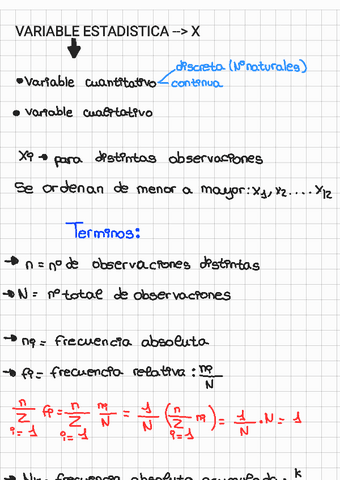 VARIABLE ESTADISTICA --> X
• Variable cuantitativo discreta (Nº naturales)
continua
• Variable cualitativo
Xi → para distintas observaciones
Se ordenan de menor a mayor: x1, x2 .... x12
Terminos:
→ n = nº de observaciones distintas
→ N = nº total de observaciones
→ ni = frecuencia absoluta
→ fi = frecuencia relativa : ni/N
n Σ i=1 fi = n Σ i=1 ni/N = 1/N (n Σ i=1 ni) = 1/N · N = 1
→ Ni = frecuencia absoluta acumulada : k